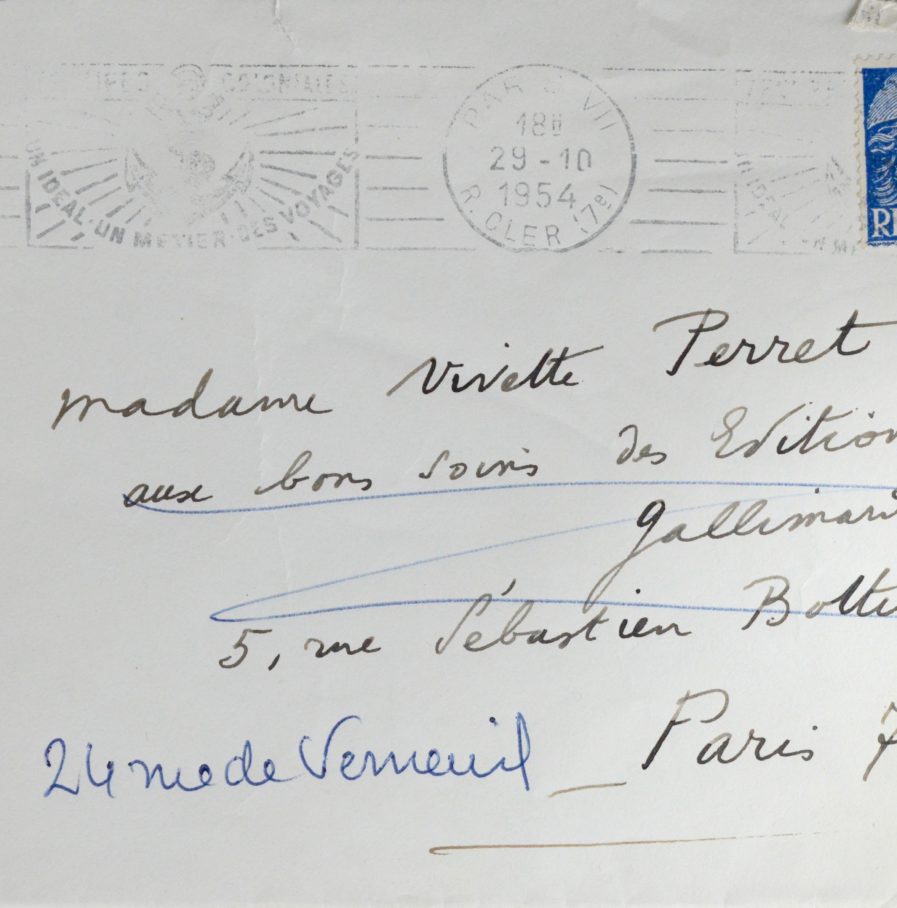 COLONIALES
UN IDEAL-UN METIER-DES VOYAGES
PARIS VII
18H
29-10
1954
R. CLER (7e)
IDEAL
RF
madame Vivette Perret
aux bons soins des Edition
Gallimard
5, rue Sébastien Botti
24 rue de Verneuil _ Paris 7